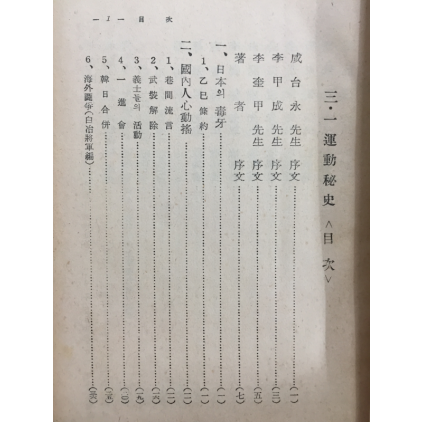 三·一運動秘史 <目次>
咸台永先生 序文 (一)
李甲成先生 序文 (三)
李奎甲先生 序文 (五)
著者 序文 (七)
一、日本의 毒牙 (一)
1、乙巳條約 (一)
二、國內人心動搖 (二)
1、巷間流言 (二)
2、武裝解除
3、義士들의 活動 (九)
4、一進會
5、韓日合併
6、海外鬪爭(白冶將軍編)
— 1 — 目次